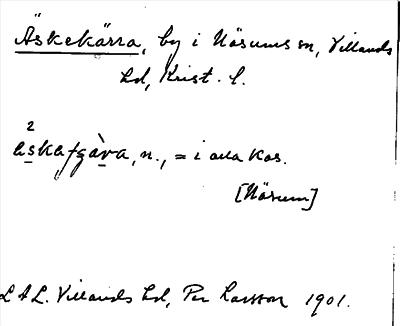 Äskekärra, by i Näsums sn, Villands
hd, Krist. l.
2
askafgàva, n., = i alla kas.
[Näsum]
LAL. Villands hd, Per Larsson 1901.